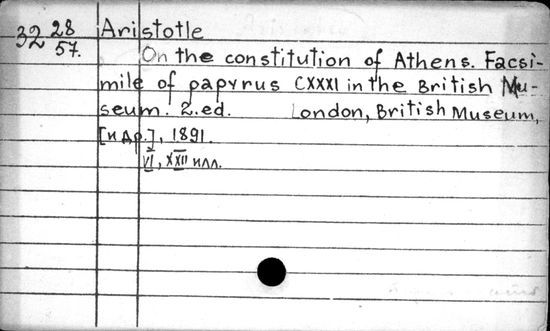 32 28/57. Aristotle
On the constitution of Athens. Facsi-
mile of papyrus CXXXI in the British Mu-
seum. 2.ed. London, British Museum,
[и др.], 1891.
VI, XXII илл.